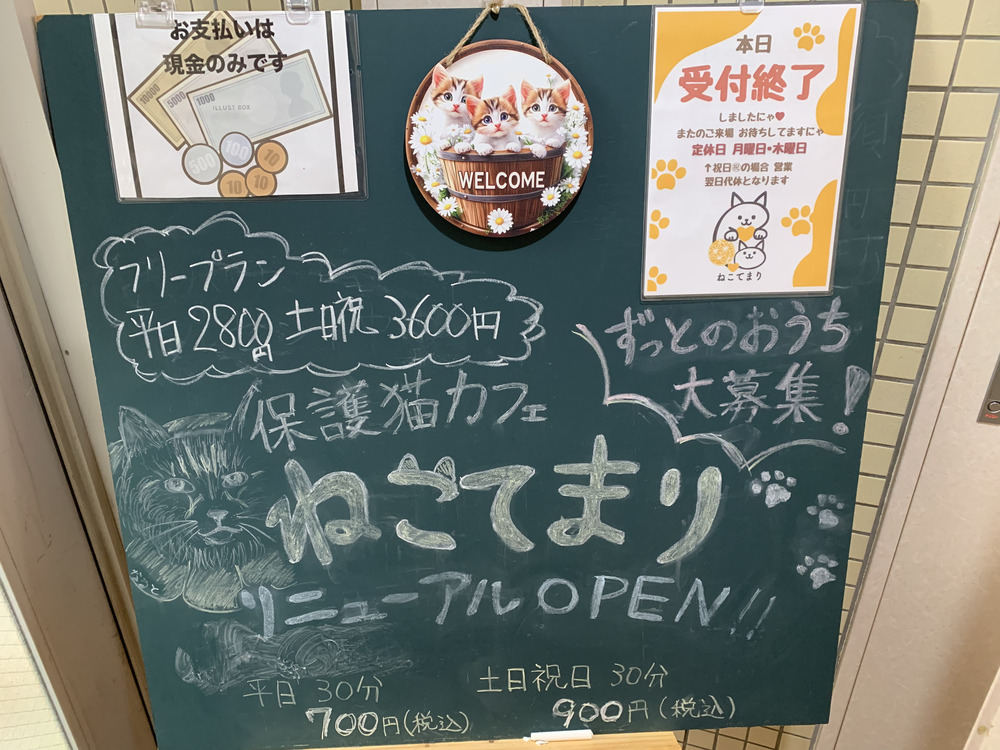 お支払いは
現金のみです
10000
5000
1000
ILLUST BOX
500
100
10
10
10
WELCOME
本日
受付終了
しましたにゃ♥
またのご来場 お待ちしてますにゃ
定休日 月曜日・木曜日
↑祝日㊗の場合 営業
翌日代休となります
ねこてまり
フリープラン
平日2800円 土日祝 3600円
ずっとのおうち
大募集!
保護猫カフェ
ねこてまり
リニューアルOPEN!!
平日 30分
700円(税込)
土日祝日 30分
900円(税込)